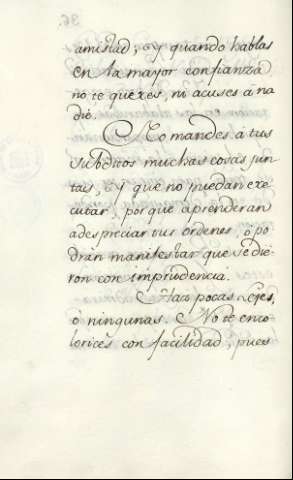 amistad; y quando hablas
en la mayor confianza
no te quexes, ni acuses á na
die.
No mandes a tus
subditos muchas cosas jun
tas, y que no puedan exe
cutar, porque aprenderan
a despreciar tus ordenes, ó po
drán manifestar que se die
ron con imprudencia.
Haz pocas Leyes,
ó ningunas. No te enco
lorices con facilidad, pues